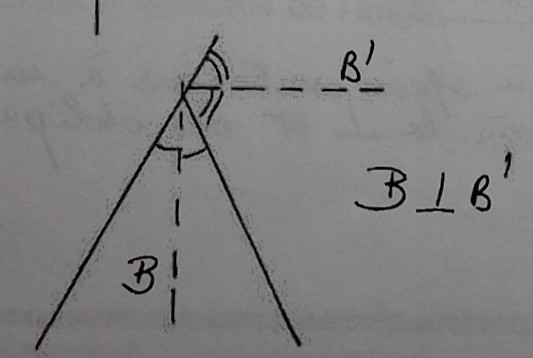 B'
B ⊥ B'
B